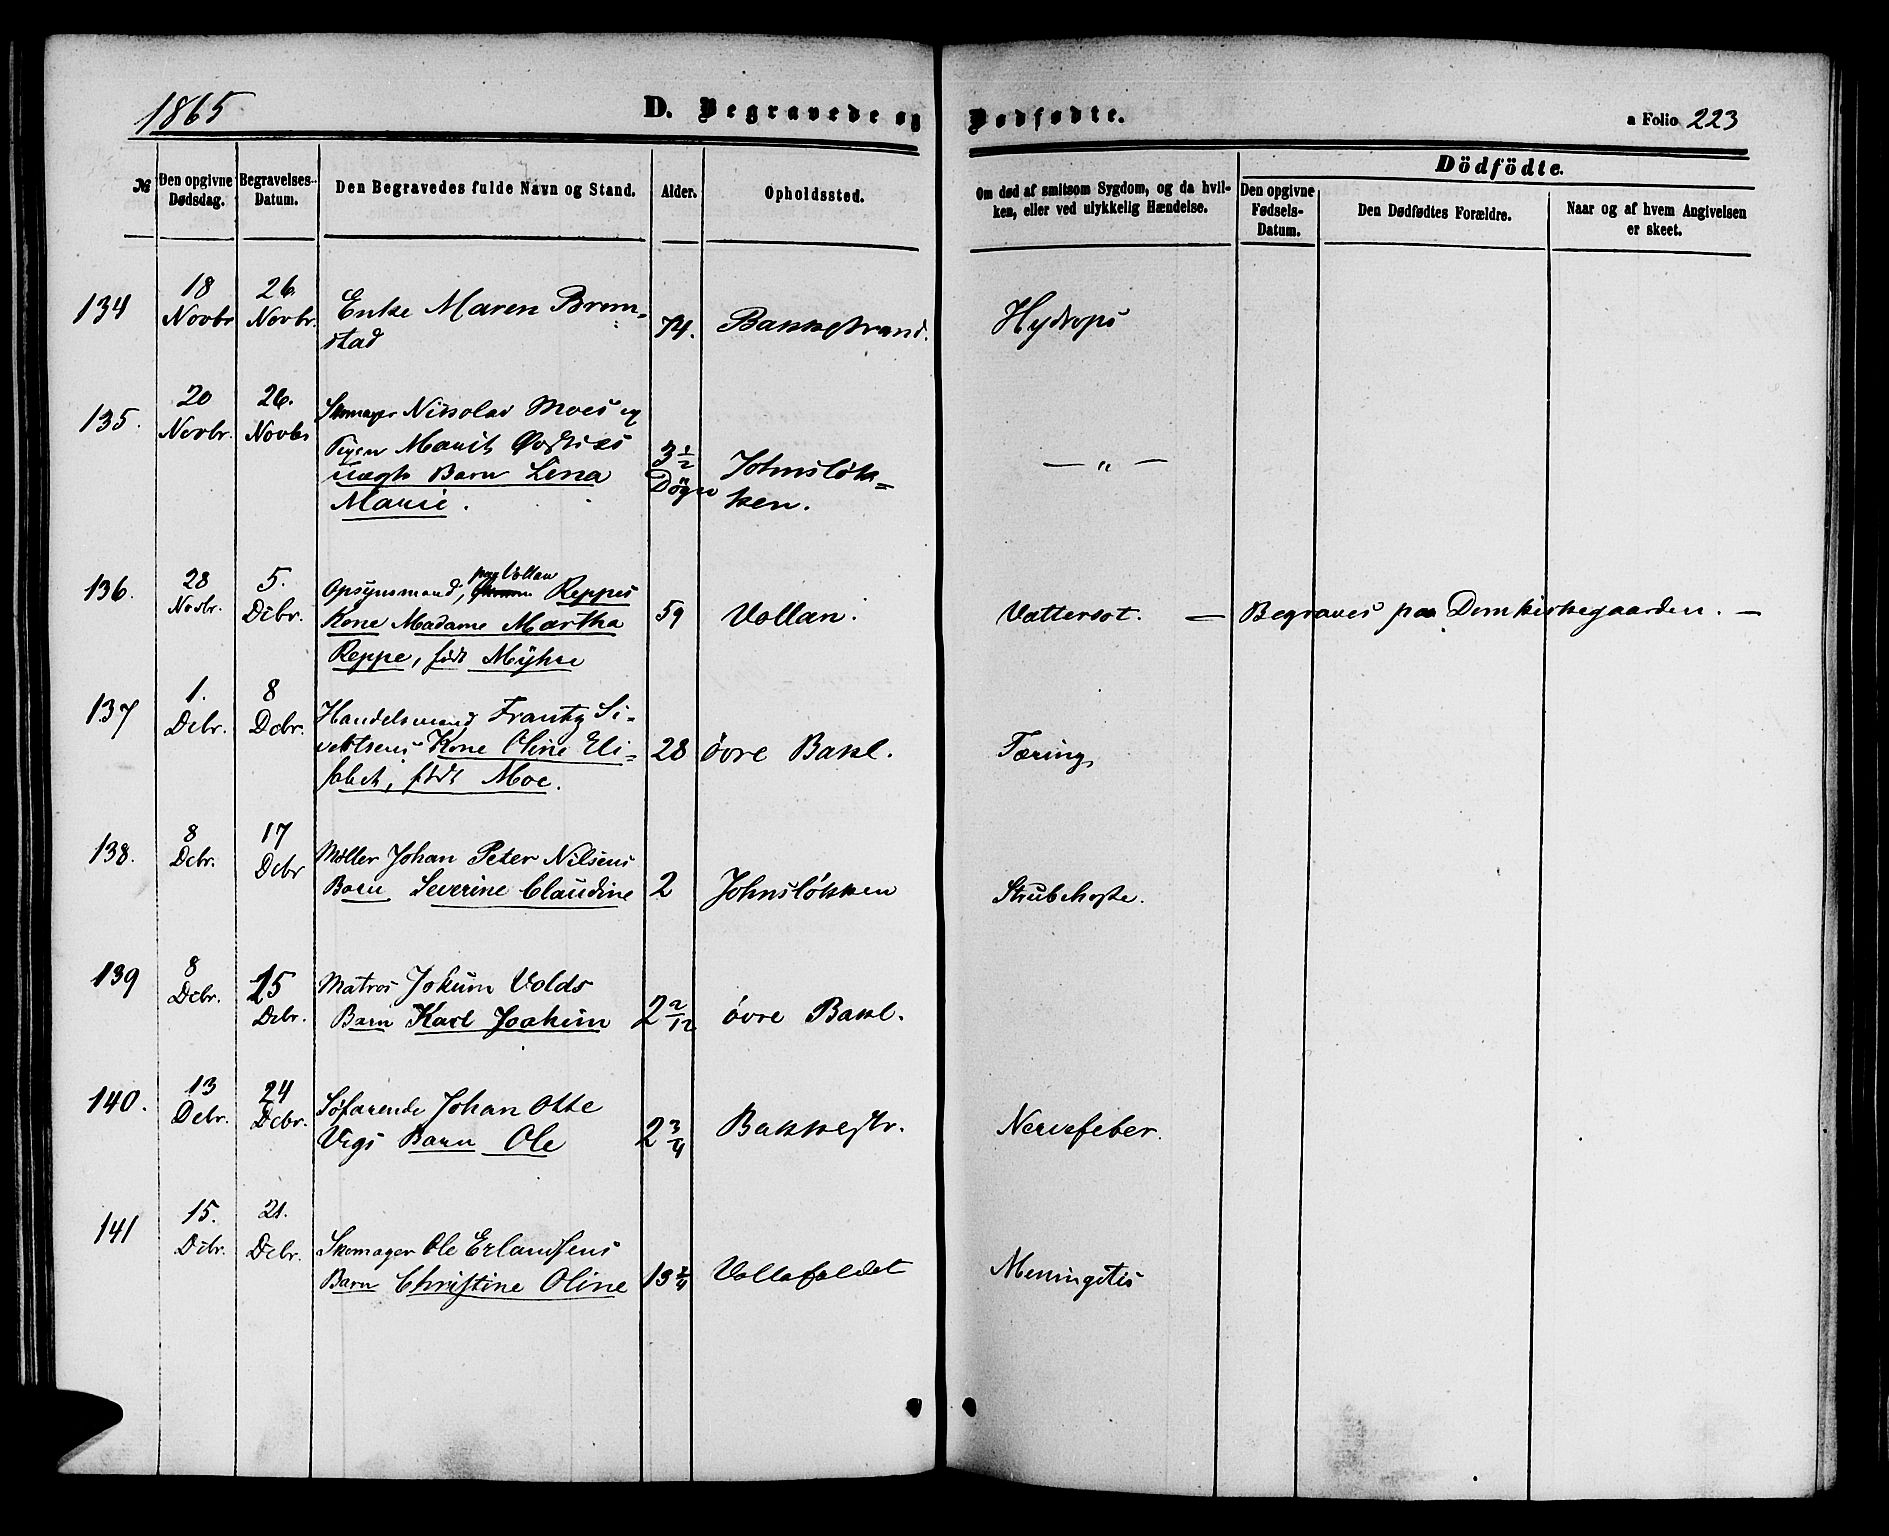 1865
D. Begravede og Dødfødte.
a Folio 223
№
Den opgivne Dødsdag.
Begravelses-Datum.
Den Begravedes fulde Navn og Stand.
Alder.
Opholdssted.
Om død af smitsom Sygdom, og da hvil-
ken, eller ved ulykkelig Hændelse.
Dödfödte.
Den opgivne Fødsels-Datum.
Den Dødfødtes Forældre.
Naar og af hvem Angivelsen er skeet.
134 18 Novbr 26. Novbr. Enke Maren Brem-
stad 74. Bakkestrand. Hydrops
135. 20 Novbr. 26. Novbr Skomager Nikolai Moes og
Pigen Marit
uægte Barn Lena 3 1/2 Døgn Johnsløk-
Marie. ken. — " —
136. 28 Novbr. 5. Dcbr. Opsynsmand, paa Vollan Reppes
Kone Madame Martha 59 Vollan. Vattersot. — Begraves paa Domkirkegaarden. —
Reppe, født Myhre
137 1. Dcbr. 8 Dcbr. Handelsmand Frantz Si-
vertsens Kone Oline Eli- 28 øvre Bakl. Tæring
sabet, født Moe.
138. 8 Dcbr. 17 Dcbr Møller Johan Peter Nilsens
Barn Severine Claudine 2 Johnsløkken Strubehoste.
139 8 Dcbr. 15 Dcbr. Matros Jokum Volds
Barn Karl Joakim 2 2/12 øvre Bakl.
140. 13 Debr. 24 Dcbr. Søfarende Johan Otte
Vigs Barn Ole 2 3/4 Bakkestr. Nervefeber.
141 15. Dcbr. 21. Dcbr. Skomager Ole Erlandsens
Barn Christine Oline 13 3/4 Vollafaldet Meningitis